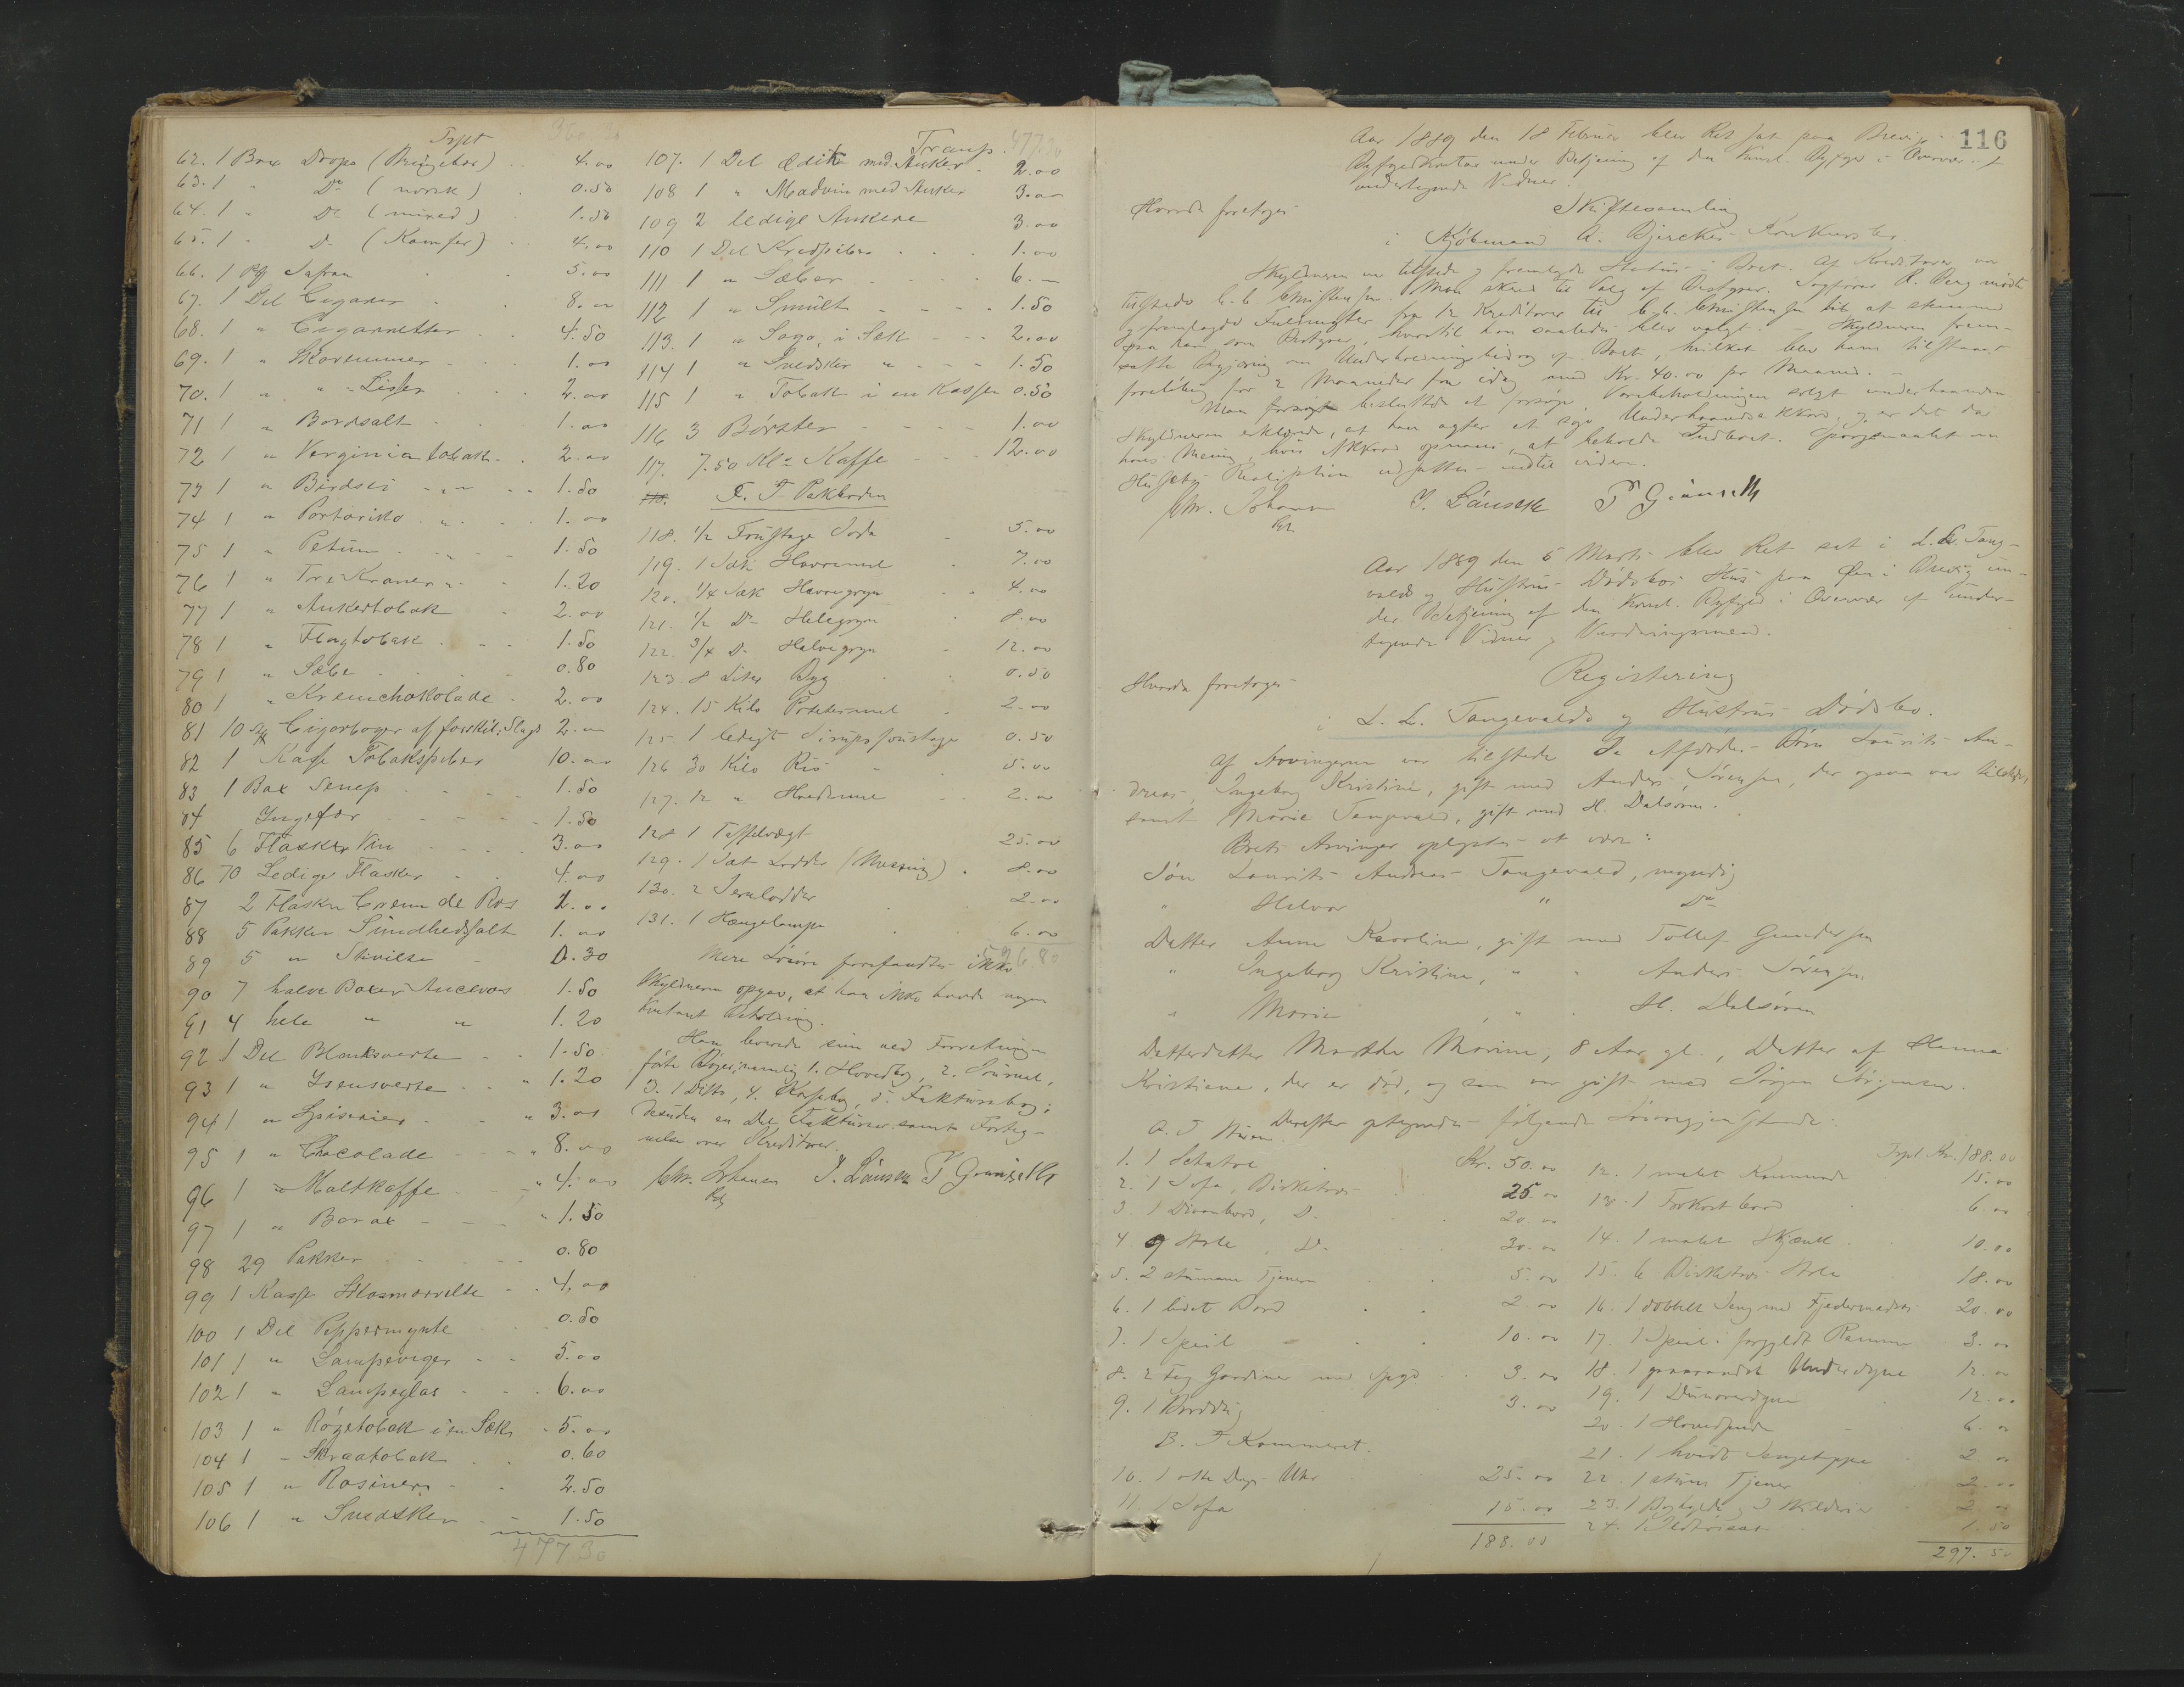 Trpt 360 20
62. 1 Box Drops . . 4.00
63. 1 " Do (norsk) . 0.50
64. 1 " Do (mixed) . 1.50
65. 1 " Do (Kamfer) . . 4.00
66. 1 Safran . . 5.00
67. 1 Del Cigarer . . 8.00
68. 1 " Cigarretter . . 4.50
69. 1 " . . 1.00
70. 1 " " Lisser . . 2.00
71 1 " Bordsalt . . 1.00
72 1 " Verginia tobak . . 2.00
73 1 " Birdsei " . . 1.50
74 1 " Portoriko " . . 1.00
75 1 " Petum " . . 1.50
76 1 " Tre Kroner " . . 1.20
77 1 " Ankertobak . 2.00
78 1 " Flagtobak . . 1.50
79 1 " Sæbe . . 0.80
80 1 " Kremchokolade . 2.00
81 10 Stk Cigarboger af forskel. Slags 2.00
82 1 Kasse Tobakspiber 10.00
83 1 Box Senep . . 1.50
84 Ingefær . . 1.50
85 6 Flasker Vin . . 3.00
86 70 Ledige Flasker . . 4.00
87 2 Flasker Crem de Ros 2.00
88 5 Pakker Sundhedssalt 1.00
89 5 " Stivelse . 0.30
90 7 halve Boxer Ancevos 1.50
91 4 hele " " 1.20
92 1 Del Blanksverte . . 1.50
93 1 " . . " 1.20
94 1 " . . " 3.00
95 1 " Chocolade . . " 8.00
96 1 " Maltkaffe . . " 4.00
97 1 " Borax . . " 1.50
98 29 Pakker . . 0.80
99 1 Kasse . . 4.00
100 1 Del Peppermynte . . 0.50
101 1 " Lampeveger . . 5.00
102 1 " Lampeglas . . 6.00
103 1 " Røgetobak i en Sæk . 5.00
104 1 " Skraatobak . . 0.60
105 1 " Rosiner . . 2.50
106 1 " Svedsker . . 1.50
477 30
Transp. 477.30
107. 1 Del Edik med Anker . 2.00
108 1 " Madvin med Anker 3.00
109 2 ledige Ankere 3.00
110 1 Del Kridpiber . . 1.00
111 1 " Sæber . . 6.00
112 1 " Smult . . 1.50
113. 1 " Sago, i Sæk . . 2.00
114 1 " Svedsker " . . 1.50
115 1 " Tobak i en Kasse 0.50
116 3 Børster . . 1.00
117. 7.50 Klo Kaffe . . 12.00
F. I Pakboden
118. 1/2 Fustage Soda . 5.00
119. 1 Sæk Havremel . 7.00
120. 1/4 Sæk Havregryn . . 4.00
121. 1/2 Do Helegryn . 8.00
122. 3/4 Do Halvegryn . 12.00
123. 8 Liter Byg . . 0.50
124. 15 Kilo Potetesmel . 2.00
125. 1 ledigt Sirupsfustage 0.50
126 30 Kilo Ris . . 5.00
127. 12 " Hvedemel . . 2.00
128 1 Taffelvægt 25.00
129. 1 Sæt Lodder (Messing) . 8.00
130. 2 Jernlodder . 2.00
131. 1 Hængelampe . . 6.00
596 80
Mere Løsøre forefandtes ikke
Skyldneren opgav, at han ikke havde nogen
Kontant Beholdning.
Han leverede sine ved Forretningen
førte Bøger, nemlig 1. Hovedbog, 2. Journal,
3. 1 Ditto, 4. Kassebog, 5. Fakturabog;
desuden en Del Fakturer samt Forteg-
nelse over Kreditorer.
Chr. Johansen J. Lausen P Grønseth
116
Aar 1889 den 18 Februar blev Ret sat paa Brevig
Byfogedkontor under Betjening af den Const. Byfoged i Overvær af
undertegnede Vidner.
Hvorda foretoges
Skiftesamling
i Kjøbmand A. Bjerckes Konkursbo
Skyldneren var tilstede og fremlagde Status i Boet. Af Kreditorer var
tilstede C. C. Christensen. Man skred til Valg af Bestyrer. Sagfører Berg mødte
og fremlagde Fuldmagter fra 12 Kreditorer til C. C. Christensen til at stemme
paa ham som Bestyrer, hvortil han saaledes blev valgt. – Skyldneren frem-
satte Begjæring om Underholdningsbidrag af Boet, hvilket blev ham tilstaaet
foreløbig for 2 Maaneder fra idag med Kr. 40.00 per Maaned. –
Man besluttede at forsøge Varebeholdningen solgt underhaanden
Skyldneren erklærede, at han agter at søge Underhaandsakkord, og er det da
hans Mening, hvis Akkord opnaaes, at beholde Indboet. Spørgsmaalet om
udsattes indtil videre.
Chr. Johansen J. Lausen P Grønseth
Aar 1889 den 5 Marts blev Ret sat i L. L. Tange-
valds og Hustrus Dødsbos Hus paa Øen i Brevig un-
der Betjening af den Konst. Byfoged i Overvær af under-
tegnede Vidner og Vurderingsmænd.
Hvorda foretoges
Registering
i L. L. Tangevalds og Hustrus Dødsbo.
Af Arvingerne var tilstede de Afdødes Børn Laurits An-
dreas, Ingeborg Kristine, gift med Anders Sørensen, der ogsaa var tilstede,
samt Marie Tangevald, gift med H. Dalsøren.
Boets Arvinger oplystes at være:
Søn Laurits Andreas Tangevald, myndig
" Halvor " Do
Datter Anne Karoline, gift med Tollef Gundersen
" Ingeborg Kristine, " " Anders Sørensen
" Marie , " " H. Dalsøren
Datterdatter Marthe Marine, 8 Aar gl., Datter af Hanna
Kristiane, der er død, og som var gift med Jørgen Jørgensen.
Derefter optegnedes følgende Løsøregjenstande:
A. I Stuen
1. 1 Schatol Kr. 50.00
2. 1 Sofa, Birketræs . 25.00
3. 1 Divanbord, Do . . 20.00
4 9 Stole , Do . . 30.00
5. 2 stumme Tjenere . . 5.00
6. 1 lidet Bord . . 2.00
7. 1 Speil . . 10.00
8. 2 Fag Gardiner med . . 3.00
9. 1 Borddug . . 3.00
B. I Kammeret.
10. 1 otte Dags Uhr 25.00
11. 1 Sofa 15.00
188.00
Trpt Kr. 188.00
12. 1 malet Kommode 15.00
13. 1 Trekort bord . 6.00
14. 1 malet Skjænk 10.00
15. 6 Birketræs Stole 18.00
16. 1 dobbelt Seng med Fjedermadras 20.00
17. 1 Speil i forgyldt Ramme 3.00
18. 1 graarandet Underdyne 12.00
19. 1 Dunoverdyne 12.00
20. 1 Hovedpude 6.00
21. 1 hvidt Sengeteppe 2.00
22. 1 stum Tjener 2.00
23. 1 Boghylde, 3 Skilderier 2.00
24. 1 1.50
297.50